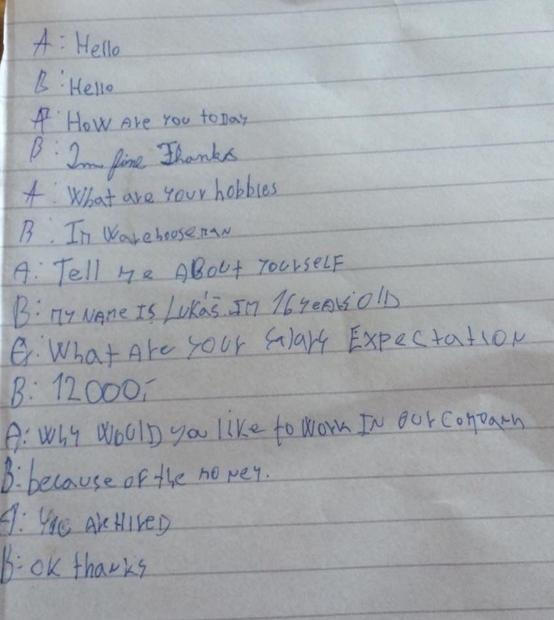 A: Hello
B: Hello
A: How are you today
B: Im fine Thanks
A: What are your hobbies
B: Im Warehooseman
A: Tell me about yourself
B: my name is Lukáš. Im 16 years old
A: What are your salary expectation
B: 12000,-
A: Why would you like to work in our company
B: because of the money.
A: You are Hired
B: ok thanks